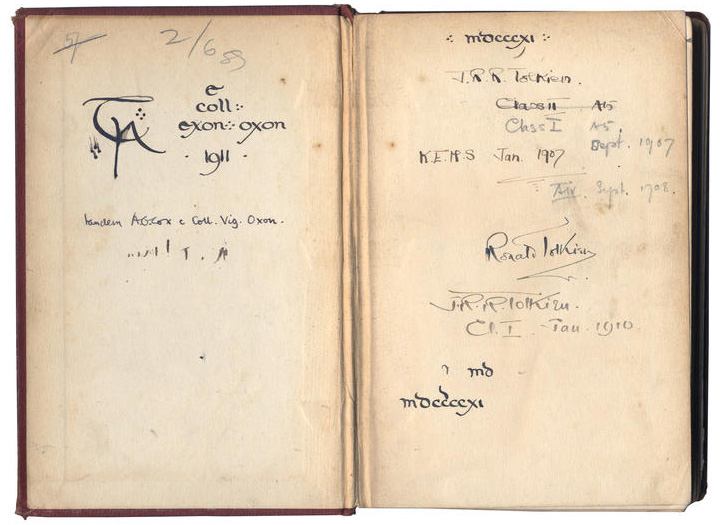 2/6
e
coll:·
exon:·oxon
· 1911 ·
tandem A.G.Cox e Coll. Vig. Oxon.
:· mdcccxi :·
J.R.R. Tolkien.
Class II
Class I A5.
Sept. 1907
K.E.H.S Jan. 1907
Sept. 1908.
Ronald Tolkien
J.R.R.Tolkien.
Cl. I Jan. 1910
md
mdccccxi